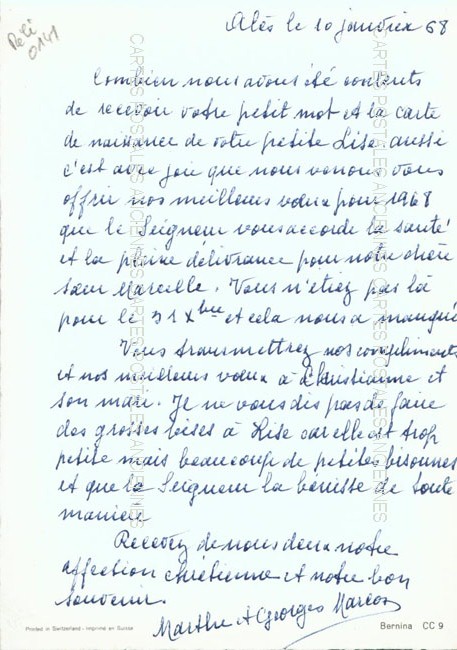 Reli
0141
Alès le 10 janvier 68
Combien nous avons été contents
de recevoir votre petit mot et la carte
de naissance de votre petite Lise aussi
c'est avec joie que nous venons vous
offrir nos meilleurs vœux pour 1968
que le Seigneur vous accorde la santé
et la pleine délivrance pour notre chère
sœur Marcelle. Vous n'étiez pas là
pour le 31 Xbre et cela nous a manqué
Vous transmettrez nos compliments
et nos meilleurs vœux à Christianne et
son mari. Je ne vous dis pas de faire
des grosses bises à Lise car elle est trop
petite mais beaucoup de petites bisounes
et que le Seigneur la bénisse de toute
manière
Recevez de nous deux notre
affection chrétienne et notre bon
souvenir.
Marthe et Georges Marcos
Printed in Switzerland - Imprimé en Suisse
Bernina CC 9
CARTES POSTALES ANCIENNES CARTES POSTALES ANCIENNES
CARTES POSTALES ANCIENNES CARTES POSTALES ANCIENNES